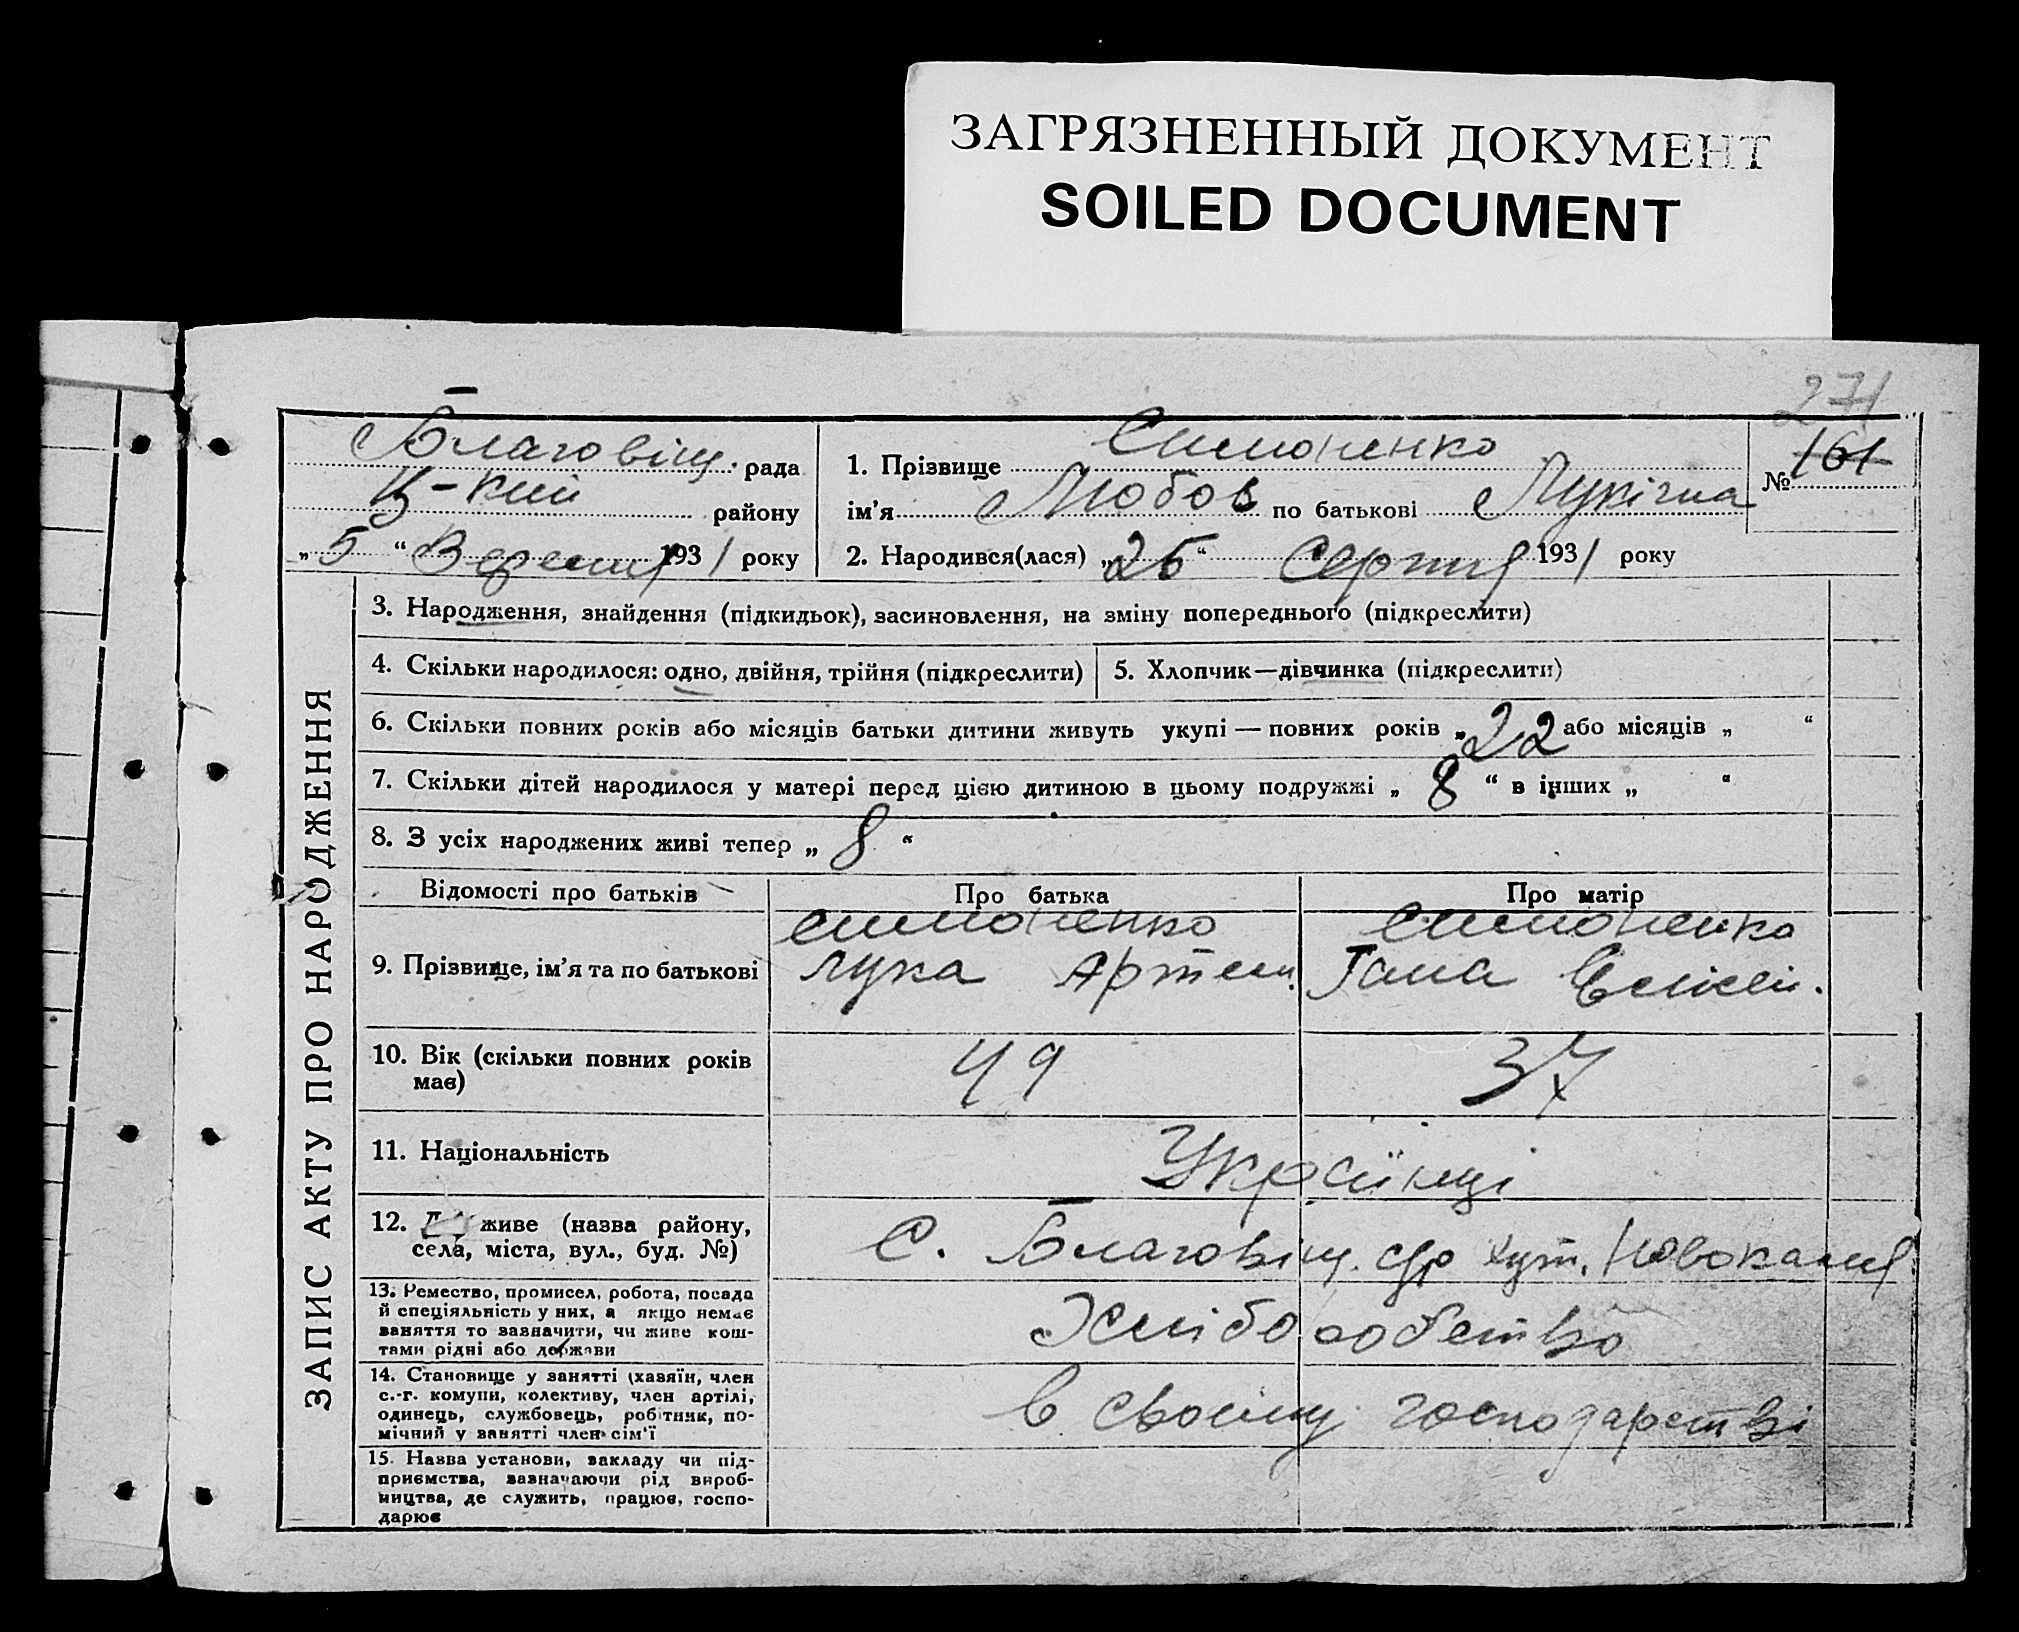 ЗАГРЯЗНЕННЫЙ ДОКУМЕНТ
SOILED DOCUMENT
271
Благовіщ. рада
Ц-кий району
„5“ Вересня 1931 року
1. Прізвище Симоненко
ім'я Любов по батькові Лукічна
№ 161
2. Народився(лася) „25“ Серпня 1931 року
ЗАПИС АКТУ ПРО НАРОДЖЕННЯ
3. Народження, знайдення (підкидьок), засиновлення, на зміну попереднього (підкреслити)
4. Скільки народилося: одно, двійня, трійня (підкреслити)
5. Хлопчик—дівчинка (підкреслити)
6. Скільки повних років або місяців батьки дитини живуть укупі — повних років „22 або місяців „ “
7. Скільки дітей народилося у матері перед цією дитиною в цьому подружжі „ 8 “ в інших „ “
8. З усіх народжених живі тепер „ 8 “
Відомості про батьків
Про батька
Про матір
9. Прізвище, ім'я та по батькові
Симоненко
Лука Артем.
Симоненко
Гана
10. Вік (скільки повних років
має)
49
37
11. Національність
Українці
12. Де живе (назва району,
села, міста, вул., буд. №)
С. Благовіщ. с/р хут.
13. Ремество, промисел, робота, посада
й спеціяльність у них, а якщо немає
заняття то зазначити, чи живе кош-
тами рідні або держави
Хліборобство
14. Становище у занятті (хазяїн, член
с.-г. комуни, колективу, член артілі,
одинець, службовець, робітник, по-
мічний у занятті член сім'ї
в своїму господарстві
15. Назва установи, закладу чи під-
приємства, зазначаючи рід вироб-
ництва, де служить, працює, госпо-
дарює